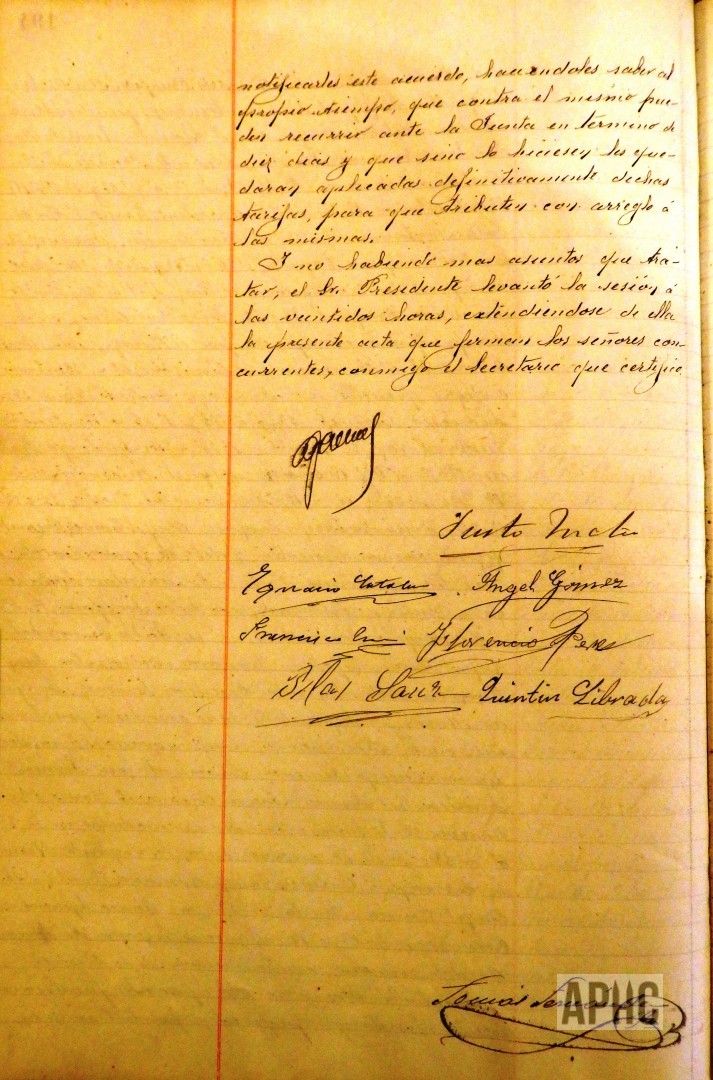 notificarles este acuerdo, haciendoles saber al
propio tiempo, que contra el mismo pue-
den recurrir ante la Junta en término de
diez dias y que sino lo hiciesen les que-
daran aplicadas definitivamente dichas
tarifas, para que tributen con arreglo á
las mismas.
Y no habiendo mas asuntos que tra-
tar, el Sr. Presidente levantó la sesión á
las veintidos horas, extendiendose de ella
la presente acta que firman los señores con-
currentes, conmigo el Secretario que certifico
Justo
Ignacio Catalan Angel Gómez
Francisco Florencio Perez
Blas Sanz Quintin Librada
Tomás
APHG